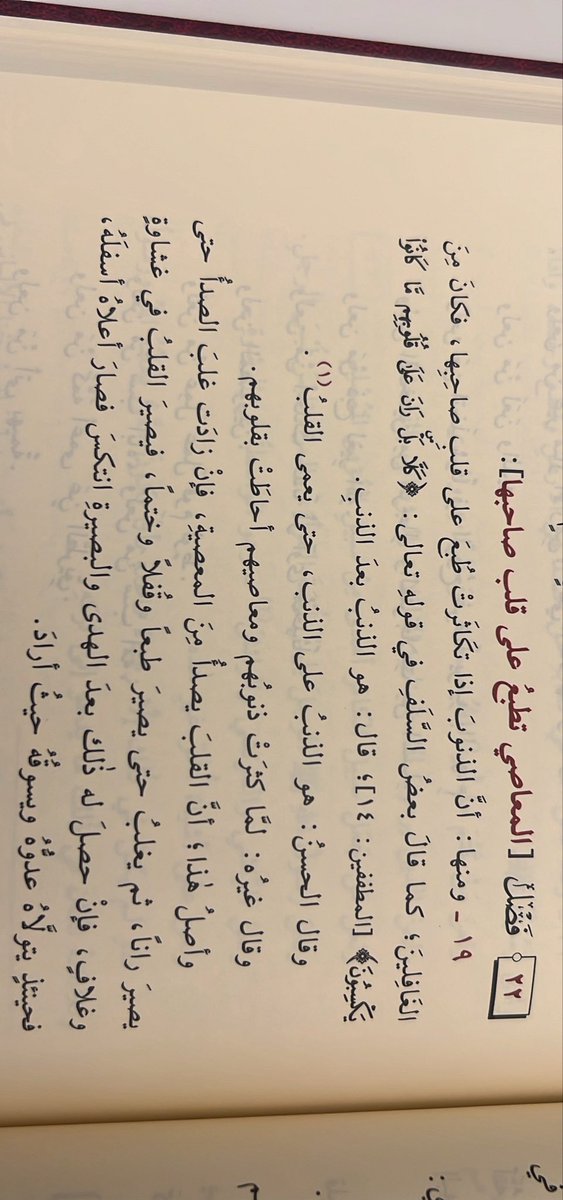 ٢٢ فَصْلٌ [المعاصي تطبعُ على قلب صاحبها]:
١٩ - ومنها: أنَّ الذنوبَ إذا تكَاثرتْ طُبعَ على قلبِ صاحِبِها، فكانَ مِنَ
الغَافِلينَ؛ كما قالَ بعضُ السَّلَفِ في قولهِ تعالى: ﴿كَلَّا بَلْ رَانَ عَلَى قُلُوبِهِم مَّا كَانُوا
يَكْسِبُونَ﴾ [المطففين: ١٤]؛ قال: هو الذنبُ بعدَ الذنبِ.
وقال الحسنُ: هو الذنبُ على الذنب، حتى يعمى القلبُ(١).
وقال غيرُه: لمَّا كثرَتْ ذنوبُهم ومعاصيهم أحاطَتْ بقلوبهم.
وأصلُ هٰذا؛ أنَّ القلبَ يصدأُ مِنَ المعصيةِ، فإنْ زادَت غلبَ الصدأُ حتى
يصيرَ راناً، ثم يغلبُ حتى يصيرَ طبعاً وقُفلاً وختماً، فيصيرَ القلبُ في غشاوةٍ
وغلافٍ، فإنْ حصلَ له ذٰلك بعدَ الهدى والبصيرةِ انتكسَ فصارَ أعلاهُ أسفلَهُ،
فحينئذٍ يتولَّاهُ عدوُّهُ ويسوقُهُ حيثُ أرادَ.